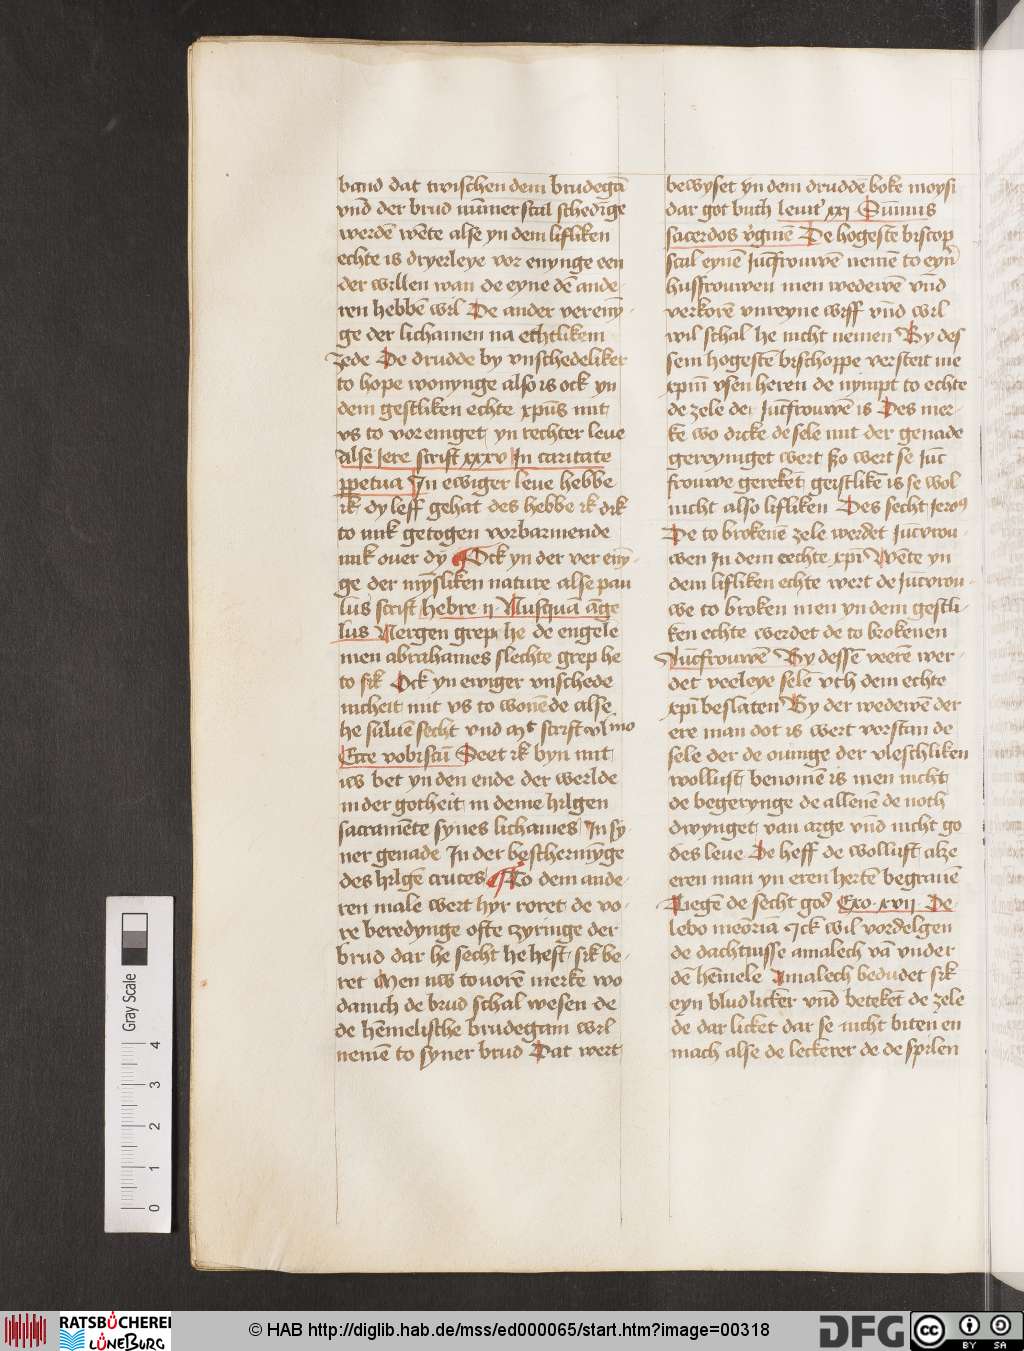 band dat twischen dem brudegā
vnd der brud nūmer scal schedīge
werdē wēte alse yn dem lifliken
echte is dryerleye vor enynge een
der willen wan de eyne dē ande-
ren hebbē wil De ander vereny-
ge der lichamen na echtlikem
zede De drudde by vnschedeliker
to hope wonynge also is ock yn
dem gestliken echte xpūs mit
vs to voreniget yn rechter leue
alse Jere script xxxv In caritate
ppetua In ewiger leue hebbe
ik dy leff gehat des hebbe ik dik
to mik getogen vorbarmende
mik ouer dy Ock yn der vereny-
ge der mȳsliken nature alse pau
lus script hebre ij Nusquā āge
lus Nergen grep he de engele
men abrahames slechte grep he
to sik Ock yn ewiger vnschede
nicheit mit vs to wonēde alse
he suluē secht vnd scrift vltimo
Ecce vobiscū Seet ik byn mit
iw bet yn den ende der werlde
in der gotheit in deme hilgen
sacramēte synes lichames In sy-
ner genade In der beschermȳge
des hilgē cruces To dem ande-
ren male wert hyr roret de vo-
re beredynge ofte czyringe der
brud dar he secht he heft sik be-
ret Men nw touorē merke wo
danich de brud schal wesen de
de hēmelische brudegam wil
nemē to syner brud Dat wert
bewyset yn dem druddē boke moysi
dar got buth leuit' xxj Sūmus
sacerdos v'ginē De hogeste biscop
scal eynē Jūcfrouwē nemē to eyn'
husfrouwen men wedewē vnd
verkorē vnreyne wiff vnd wil
wil schal he nicht nemen By des
sem hogestē bischoppe versteit me
xpm vsen heren de nympt to echte
de zele de Jūcfrouwē is Des mer-
ke wo dicke de sele mit der genade
gereyniget wert szo wert se Jūc
frouwe gereket geistlikē is se wol
nicht also liflikē Des secht Jero9
De to brokenē zele werdet Jūcvrou-
wen In dem eechte xpi Wēte yn
dem lifliken echte wert de Jūcvrou-
we to broken men yn dem gestli-
ken echte werdet de to brokenen
Jūcfrouwē By dessē veerē wer-
det veeleye selē vth dem echte
xpi beslatēn By der wedewē der
ere man dot is wert vorstan de
sele der de ouinge der vleschliken
wollust benomē is men nicht
de begerynge de allenē de noth
dwynget van arge vnd nicht go
des leue De heff de wollust alze
eren man yn eren hertē begrauē
Liegē de secht god Exo xvij De-
lebo meoriā Jck wil vordelgen
de dachtnisse amalech vā vnder
dē hēmele Amalech bedudet sik
eyn bludlicker vnd betekēt de zele
de dar licket dar se nicht biten en
mach alse de leckerer de de spilen
Gray Scale
4
3
2
1
0
RATSBÜCHEREI
LÜNEBURG
© HAB http://diglib.hab.de/mss/ed000065/start.htm?image=00318
DFG
cc
BY SA